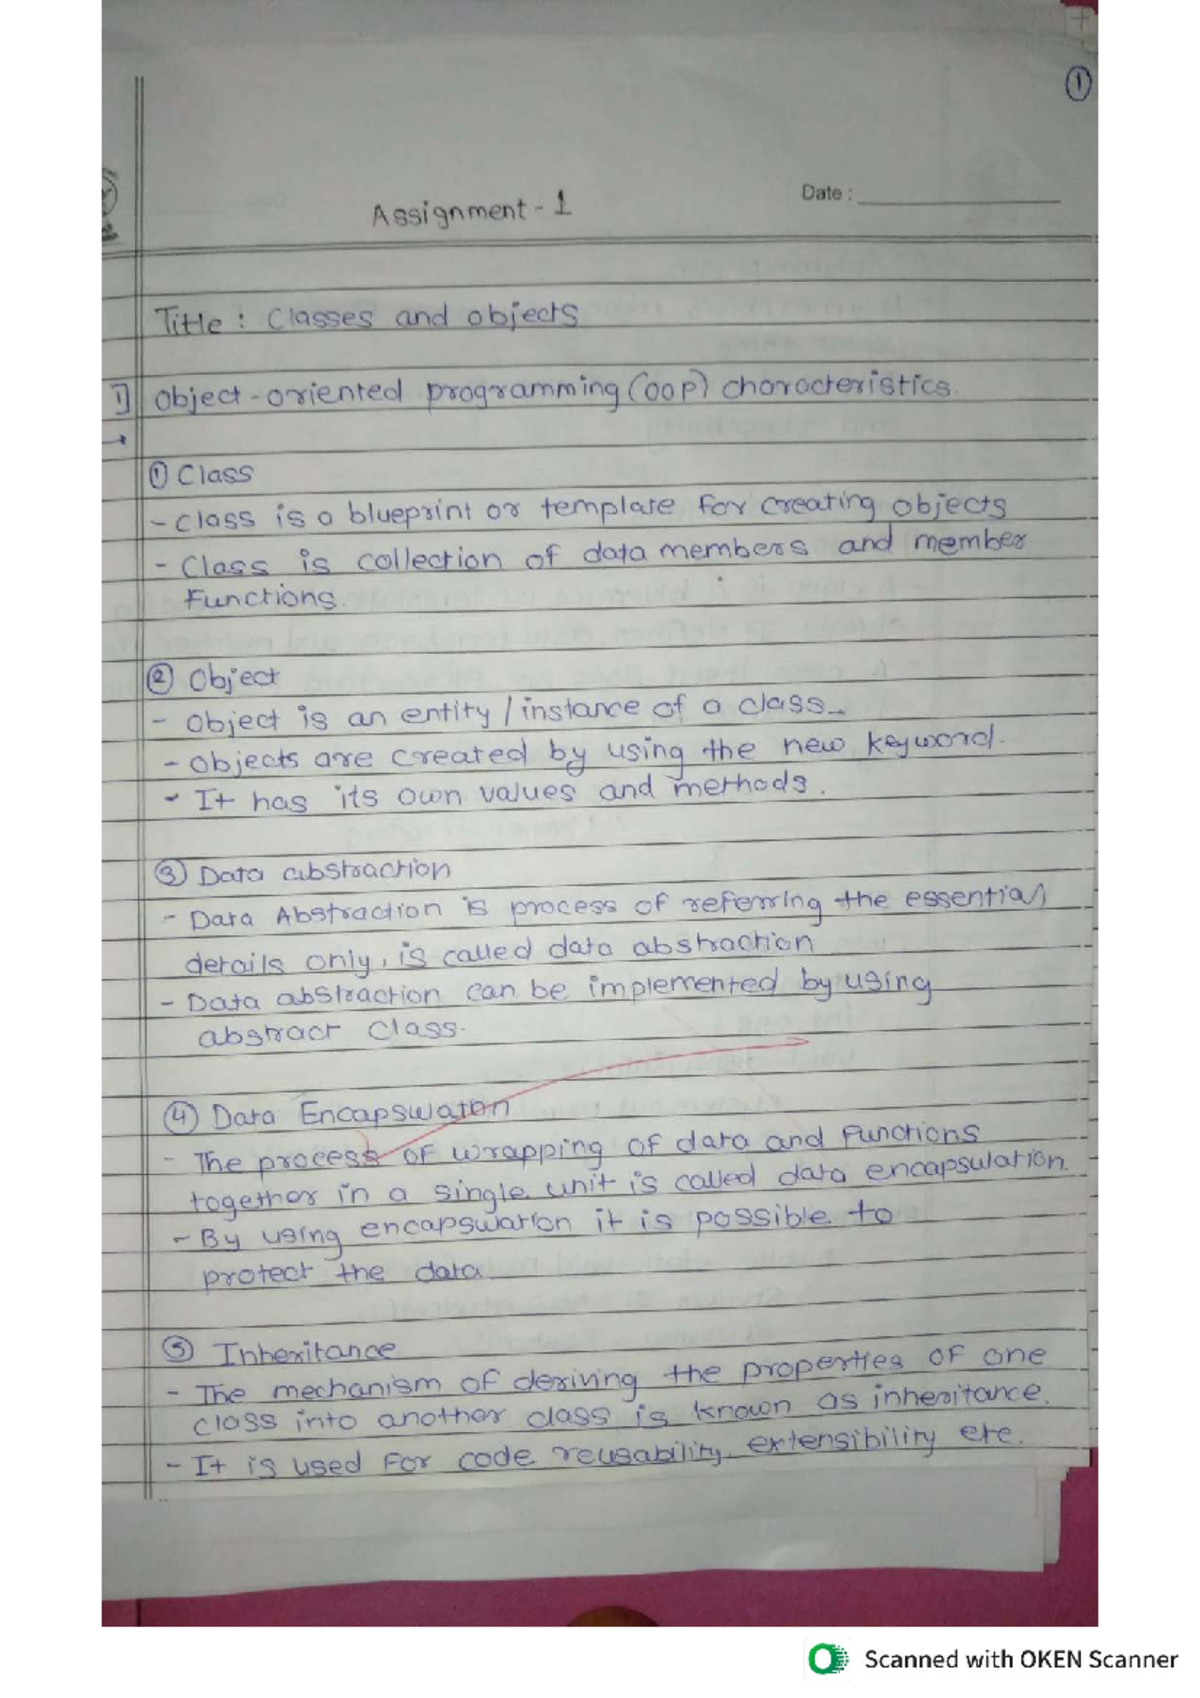 1
Assignment - 1
Date :
Title : Classes and objects
1] Object-oriented programming (OOP) characteristics.
→
① Class
- Class is a blueprint or template for creating objects
- Class is collection of data members and member
Functions.
② Object
- Object is an entity / instance of a class.
- Objects are created by using the new keyword.
- It has its own values and methods.
③ Data abstraction
- Data Abstraction is process of referring the essential
details only, is called data abstraction
- Data abstraction can be implemented by using
abstract class.
④ Data Encapsulaton
- The process of wrapping of data and Functions
together in a single unit is called data encapsulation.
- By using encapsulation it is possible to
protect the data
⑤ Inheritance
- The mechanism of deriving the properties of one
class into another class is known as inheritance.
- It is used For code reusability, extensibility etc.
Scanned with OKEN Scanner